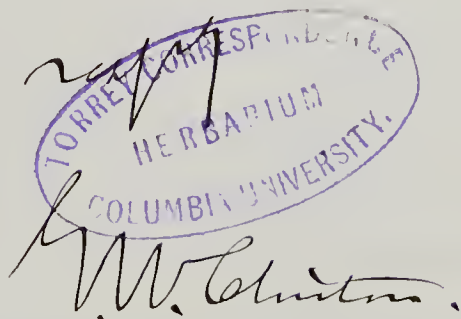 TORREY CORRESPONDENCE
HERBARIUM
COLUMBIA UNIVERSITY.
G. W. Clinton.